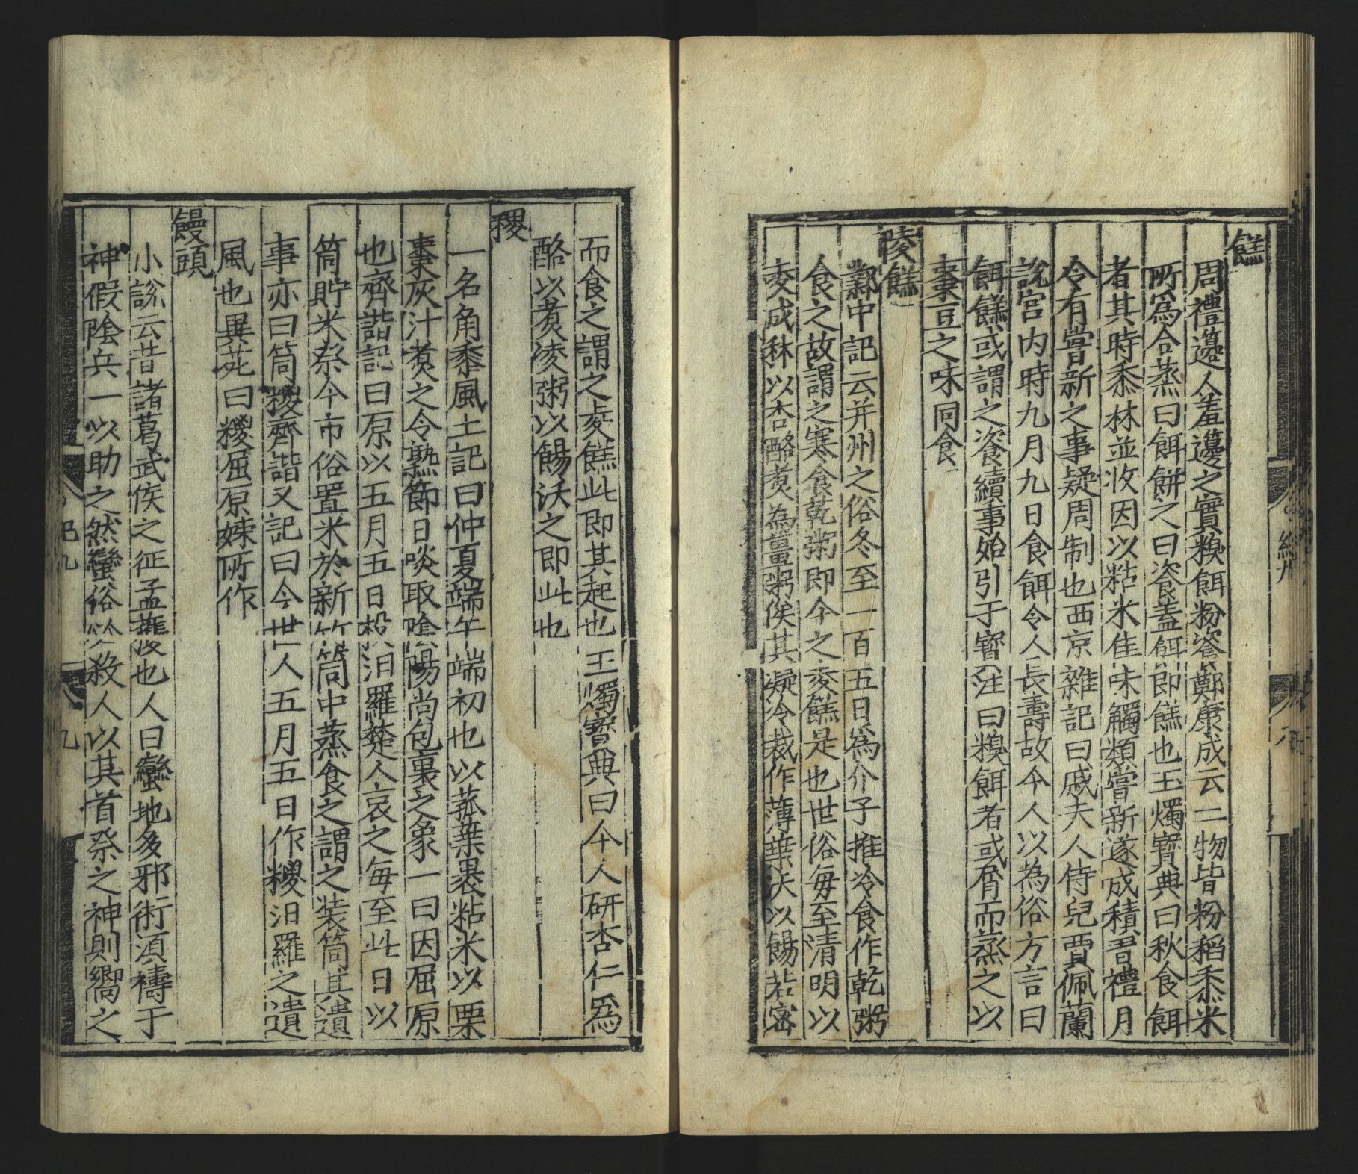 餻
周禮籩人羞籩之實糗餌粉餈鄭康成云二物皆粉稻黍米
所爲合蒸曰餌餅之曰餈蓋餌即餻也玉燭寶典曰秋食餌
者其時黍秫並收因以粘米佳味觸類嘗新遂成積習禮月
令有嘗新之事疑周制也西京雜記曰戚夫人侍兒賈佩蘭
說宮内時九月九日食餌令人長壽故今人以為俗方言曰
餌餻或謂之餈續事始引于寶注曰糗餌者或屑而蒸之以
棗豆之味同食
䴡餻
鄴中記云并州之俗冬至一百五日爲介子推冷食作乾粥
食之故謂之寒食乾粥即今之麥餻是也世俗每至清明以
麥成秫以杏酪煮為薑粥俟其凝冷裁作薄葉沃以餳若蜜
而食之謂之麥餻此即其起也玉燭寶典曰今人研杏仁爲
酪以煮麥粥以餳沃之即此也
糉
一名角黍風土記曰仲夏端午端初也以菰葉裹粘米以栗
棗灰汁煮之令熟節日啖取陰陽尚包裹之象一曰因屈原
也齊諧記曰原以五月五日投汨羅楚人哀之每至此日以
筒貯米祭今市俗置米於新竹筒中蒸食之謂之裝筒其遺
事亦曰筒糉齊諧又記曰今世人五月五日作糉汨羅之遺
風也異苑曰糉屈原姊所作
饅頭
小說云昔諸葛武侯之征孟獲也人曰蠻地多邪術須禱于
神假陰兵一以助之然蠻俗必殺人以其首祭之神則嚮之
紀九
九